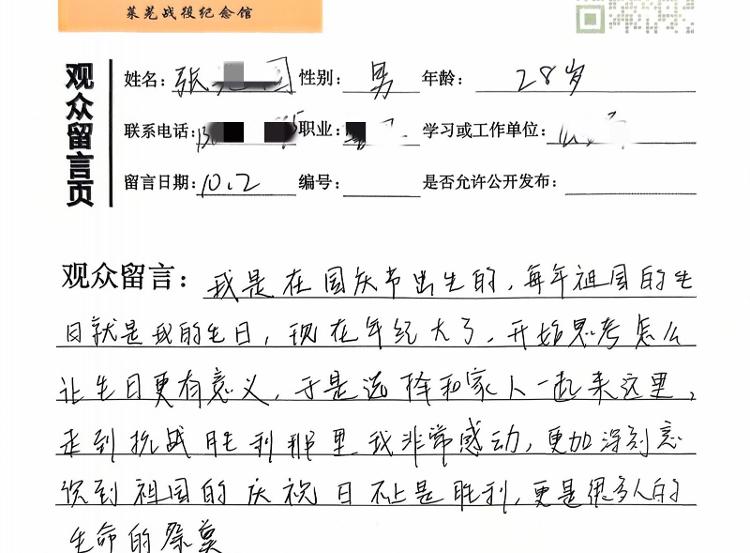 莱芜战役纪念馆
观众留言页
姓名：张 性别：男 年龄：28岁
联系电话： 职业： 学习或工作单位：
留言日期：10.2 编号： 是否允许公开发布：
观众留言：我是在国庆节出生的，每年祖国的生
日就是我的生日，现在年纪大了，开始思考怎么
让生日更有意义，于是选择和家人一起来这里，
走到抗战胜利那里我非常感动，更加深刻意
识到祖国的庆祝日不止是胜利，更是很多人的
生命的祭奠